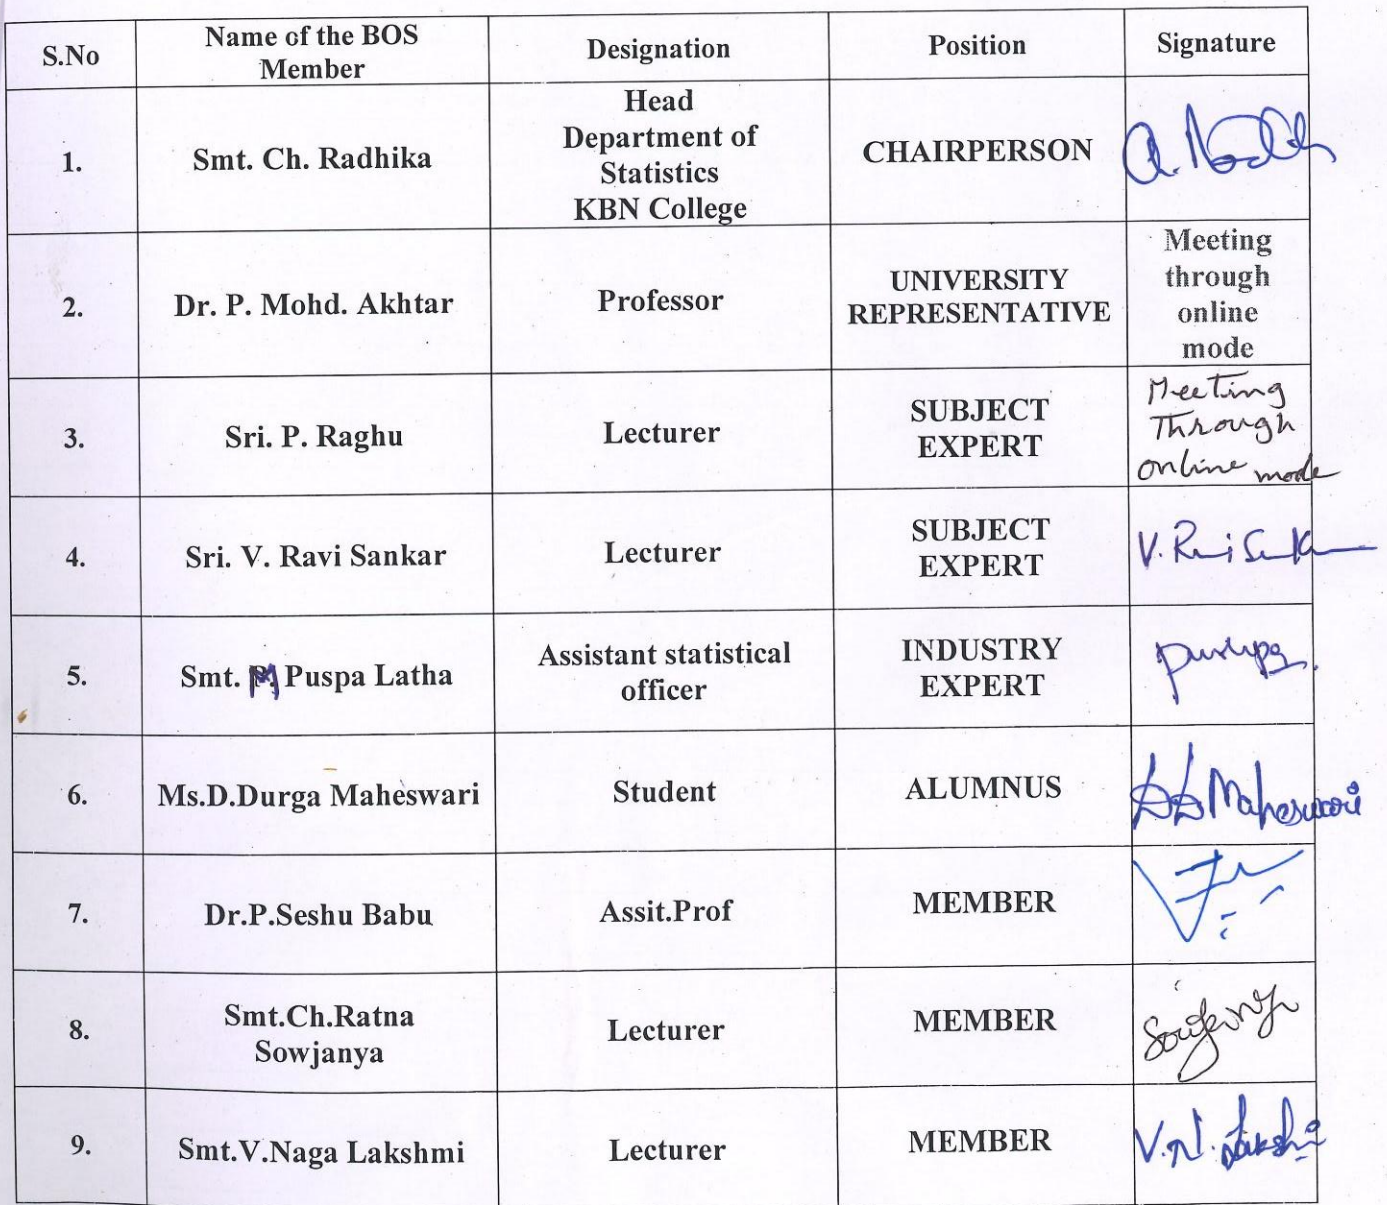 S.No
Name of the BOS
Member
Designation
Position
Signature
1.
Smt. Ch. Radhika
Head
Department of
Statistics
KBN College
CHAIRPERSON
2.
Dr. P. Mohd. Akhtar
Professor
UNIVERSITY
REPRESENTATIVE
Meeting
through
online
mode
3.
Sri. P. Raghu
Lecturer
SUBJECT
EXPERT
Meeting
Through
online mode
4.
Sri. V. Ravi Sankar
Lecturer
SUBJECT
EXPERT
V. Ravi Sankar
5.
Smt. M Puspa Latha
Assistant statistical
officer
INDUSTRY
EXPERT
pushpa
6.
Ms.D.Durga Maheswari
Student
ALUMNUS
DD Maheswari
7.
Dr.P.Seshu Babu
Assit.Prof
MEMBER
8.
Smt.Ch.Ratna
Sowjanya
Lecturer
MEMBER
Sowjanya
9.
Smt.V.Naga Lakshmi
Lecturer
MEMBER
V.N. Lakshmi